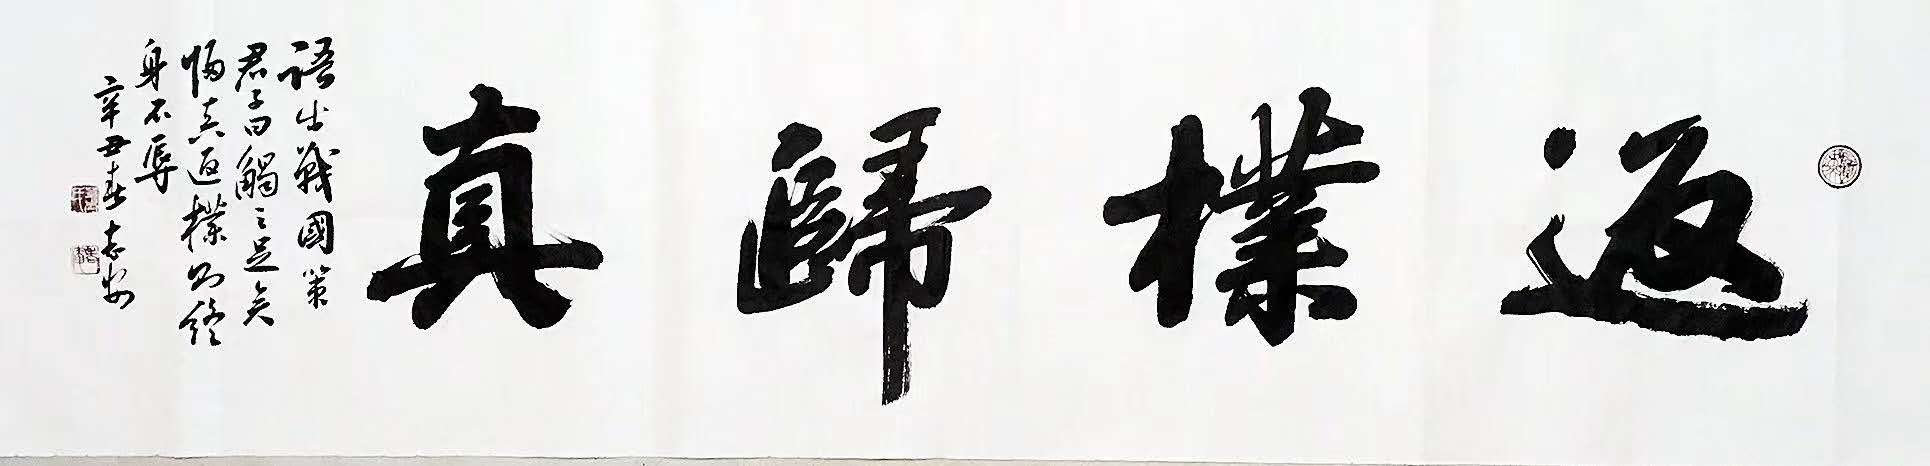 返樸歸真
語出戰國策
君子曰觸之足矣
歸真返樸則終
身不辱
辛丑春志安